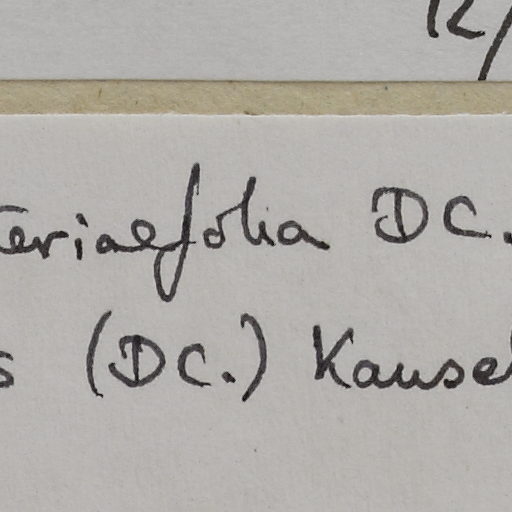 12/
teriaefolia DC.
s (DC.) Kausel